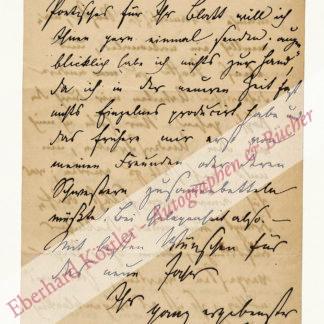 Poetisches für Ihr Blatt will ich
Ihnen gern einmal senden, augen
blicklich habe ich nichts zur Hand,
da ich in der neueren Zeit fast
nichts Einzelnes producirt habe u.
das frühere mir erst von
meinen Freunden oder deren
Schwestern zusammenbetteln
müßte. Bei Gelegenheit also. –
Mit besten Wünschen für
neue Jahr
Ihr ganz ergebenster
Eberhard Köstler - Autographen & Bücher